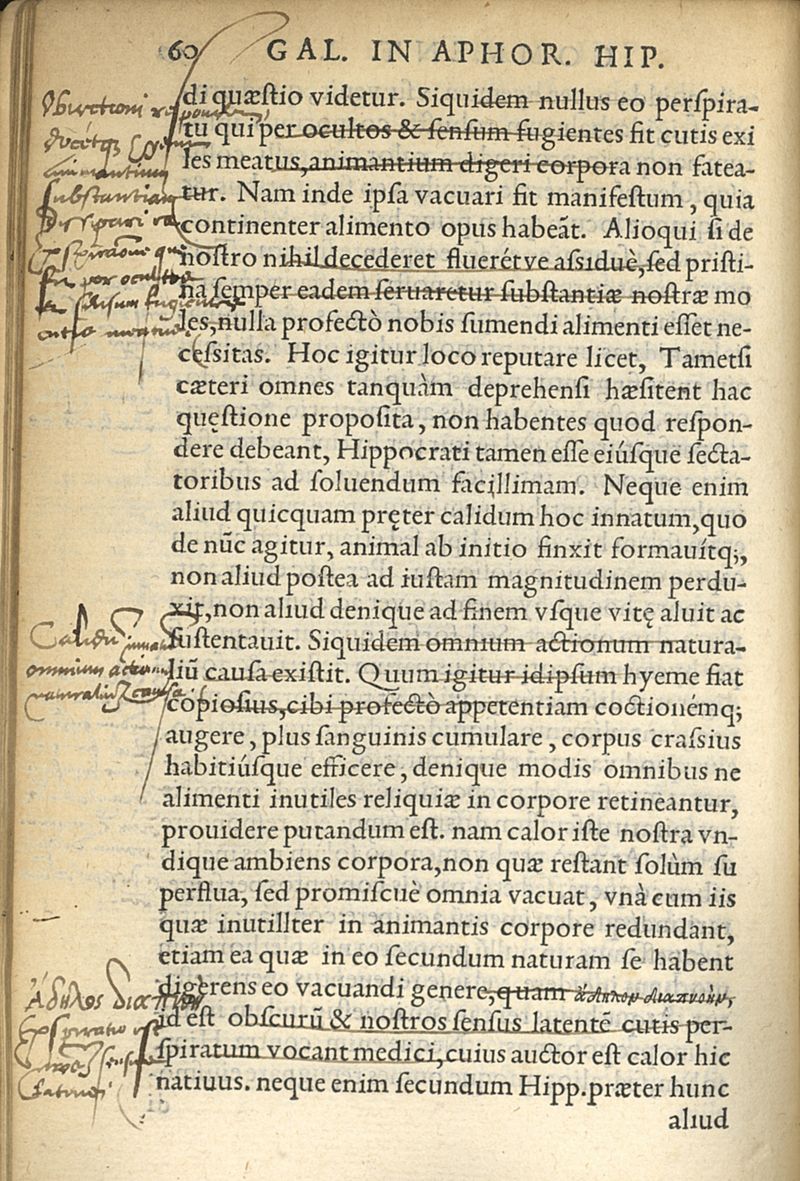 60 GAL. IN APHOR. HIP.
di quæſtio videtur. Siquidem nullus eo perſpira-
tu qui per ocultos & ſenſum fugientes fit cutis exi
les meatus, animantium digeri corpora non fatea-
tur. Nam inde ipſa vacuari fit manifeſtum, quia
continenter alimento opus habeāt. Alioqui ſi de
noſtro nihil decederet fluerétve aſsiduè, ſed priſti-
na ſemper eadem ſeruaretur ſubſtantiæ noſtræ mo
les, nulla profectò nobis ſumendi alimenti eſſet ne-
ceſsitas. Hoc igitur loco reputare licet, Tametſi
cæteri omnes tanquàm deprehenſi hæſitent hac
quęſtione propoſita, non habentes quod reſpon-
dere debeant, Hippocrati tamen eſſe eiúſque ſecta-
toribus ad ſoluendum facillimam. Neque enim
aliud quicquam pręter calidum hoc innatum, quo
de nūc agitur, animal ab initio finxit formauítq;,
non aliud poſtea ad iuſtam magnitudinem perdu-
xit, non aliud denique ad finem vſque vitę aluit ac
ſuſtentauit. Siquidem omnium actionum natura-
liū cauſa exiſtit. Quum igitur idipſum hyeme fiat
copioſius, cibi profectò appetentiam coctionémq;
augere, plus ſanguinis cumulare, corpus craſsius
habitiúſque efficere, denique modis omnibus ne
alimenti inutiles reliquiæ in corpore retineantur,
prouidere putandum eſt. nam calor iſte noſtra vn-
dique ambiens corpora, non quæ reſtant ſolùm ſu
perflua, ſed promiſcuè omnia vacuat, vnà cum iis
quæ inutillter in animantis corpore redundant,
etiam ea quæ in eo ſecundum naturam ſe habent
digèrens eo vacuandi genere, quam ἄδηλον διαπνοὴν,
id eſt obſcurū & noſtros ſenſus latentē cutis per-
ſpiratum vocant medici, cuius auctor eſt calor hic
natiuus. neque enim ſecundum Hipp. præter hunc
aliud
substantiam
Dissipari
per occultos
Calidū innatū
omnium actionū
naturaliū causa
Ἄδηλος διαπνοη